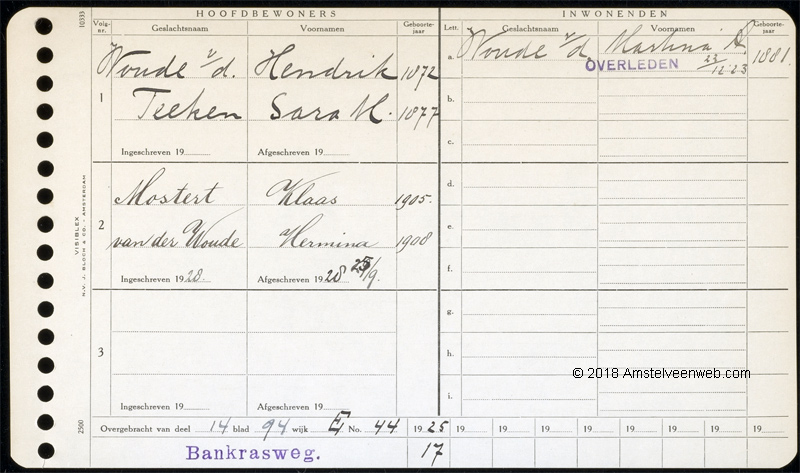 HOOFDBEWONERS
Volg-nr. Geslachtsnaam Voornamen Geboorte-jaar
1 Woude v/d. Hendrik 1872
Teeken Sara M. 1877
Ingeschreven 19 Afgeschreven 19
2 Mostert Klaas 1905.
van der Woude Hermina 1908
Ingeschreven 1928. Afgeschreven 1928 25/9.
3
Ingeschreven 19 Afgeschreven 19
INWONENDEN
Lett. Geslachtsnaam Voornamen Geboorte-jaar
a. Woude v/d Martina A. 1881.
OVERLEDEN 23/12 23
b.
c.
d.
e.
f.
g.
h.
i.
© 2018 Amstelveenweb.com
Overgebracht van deel 14 blad 94 wijk E No. 44 1925 19 19 19 19 19 19 19 19
Bankrasweg. 17
10333
VISIBLEX
N.V. J. BLOCH & CO. - AMSTERDAM
2500